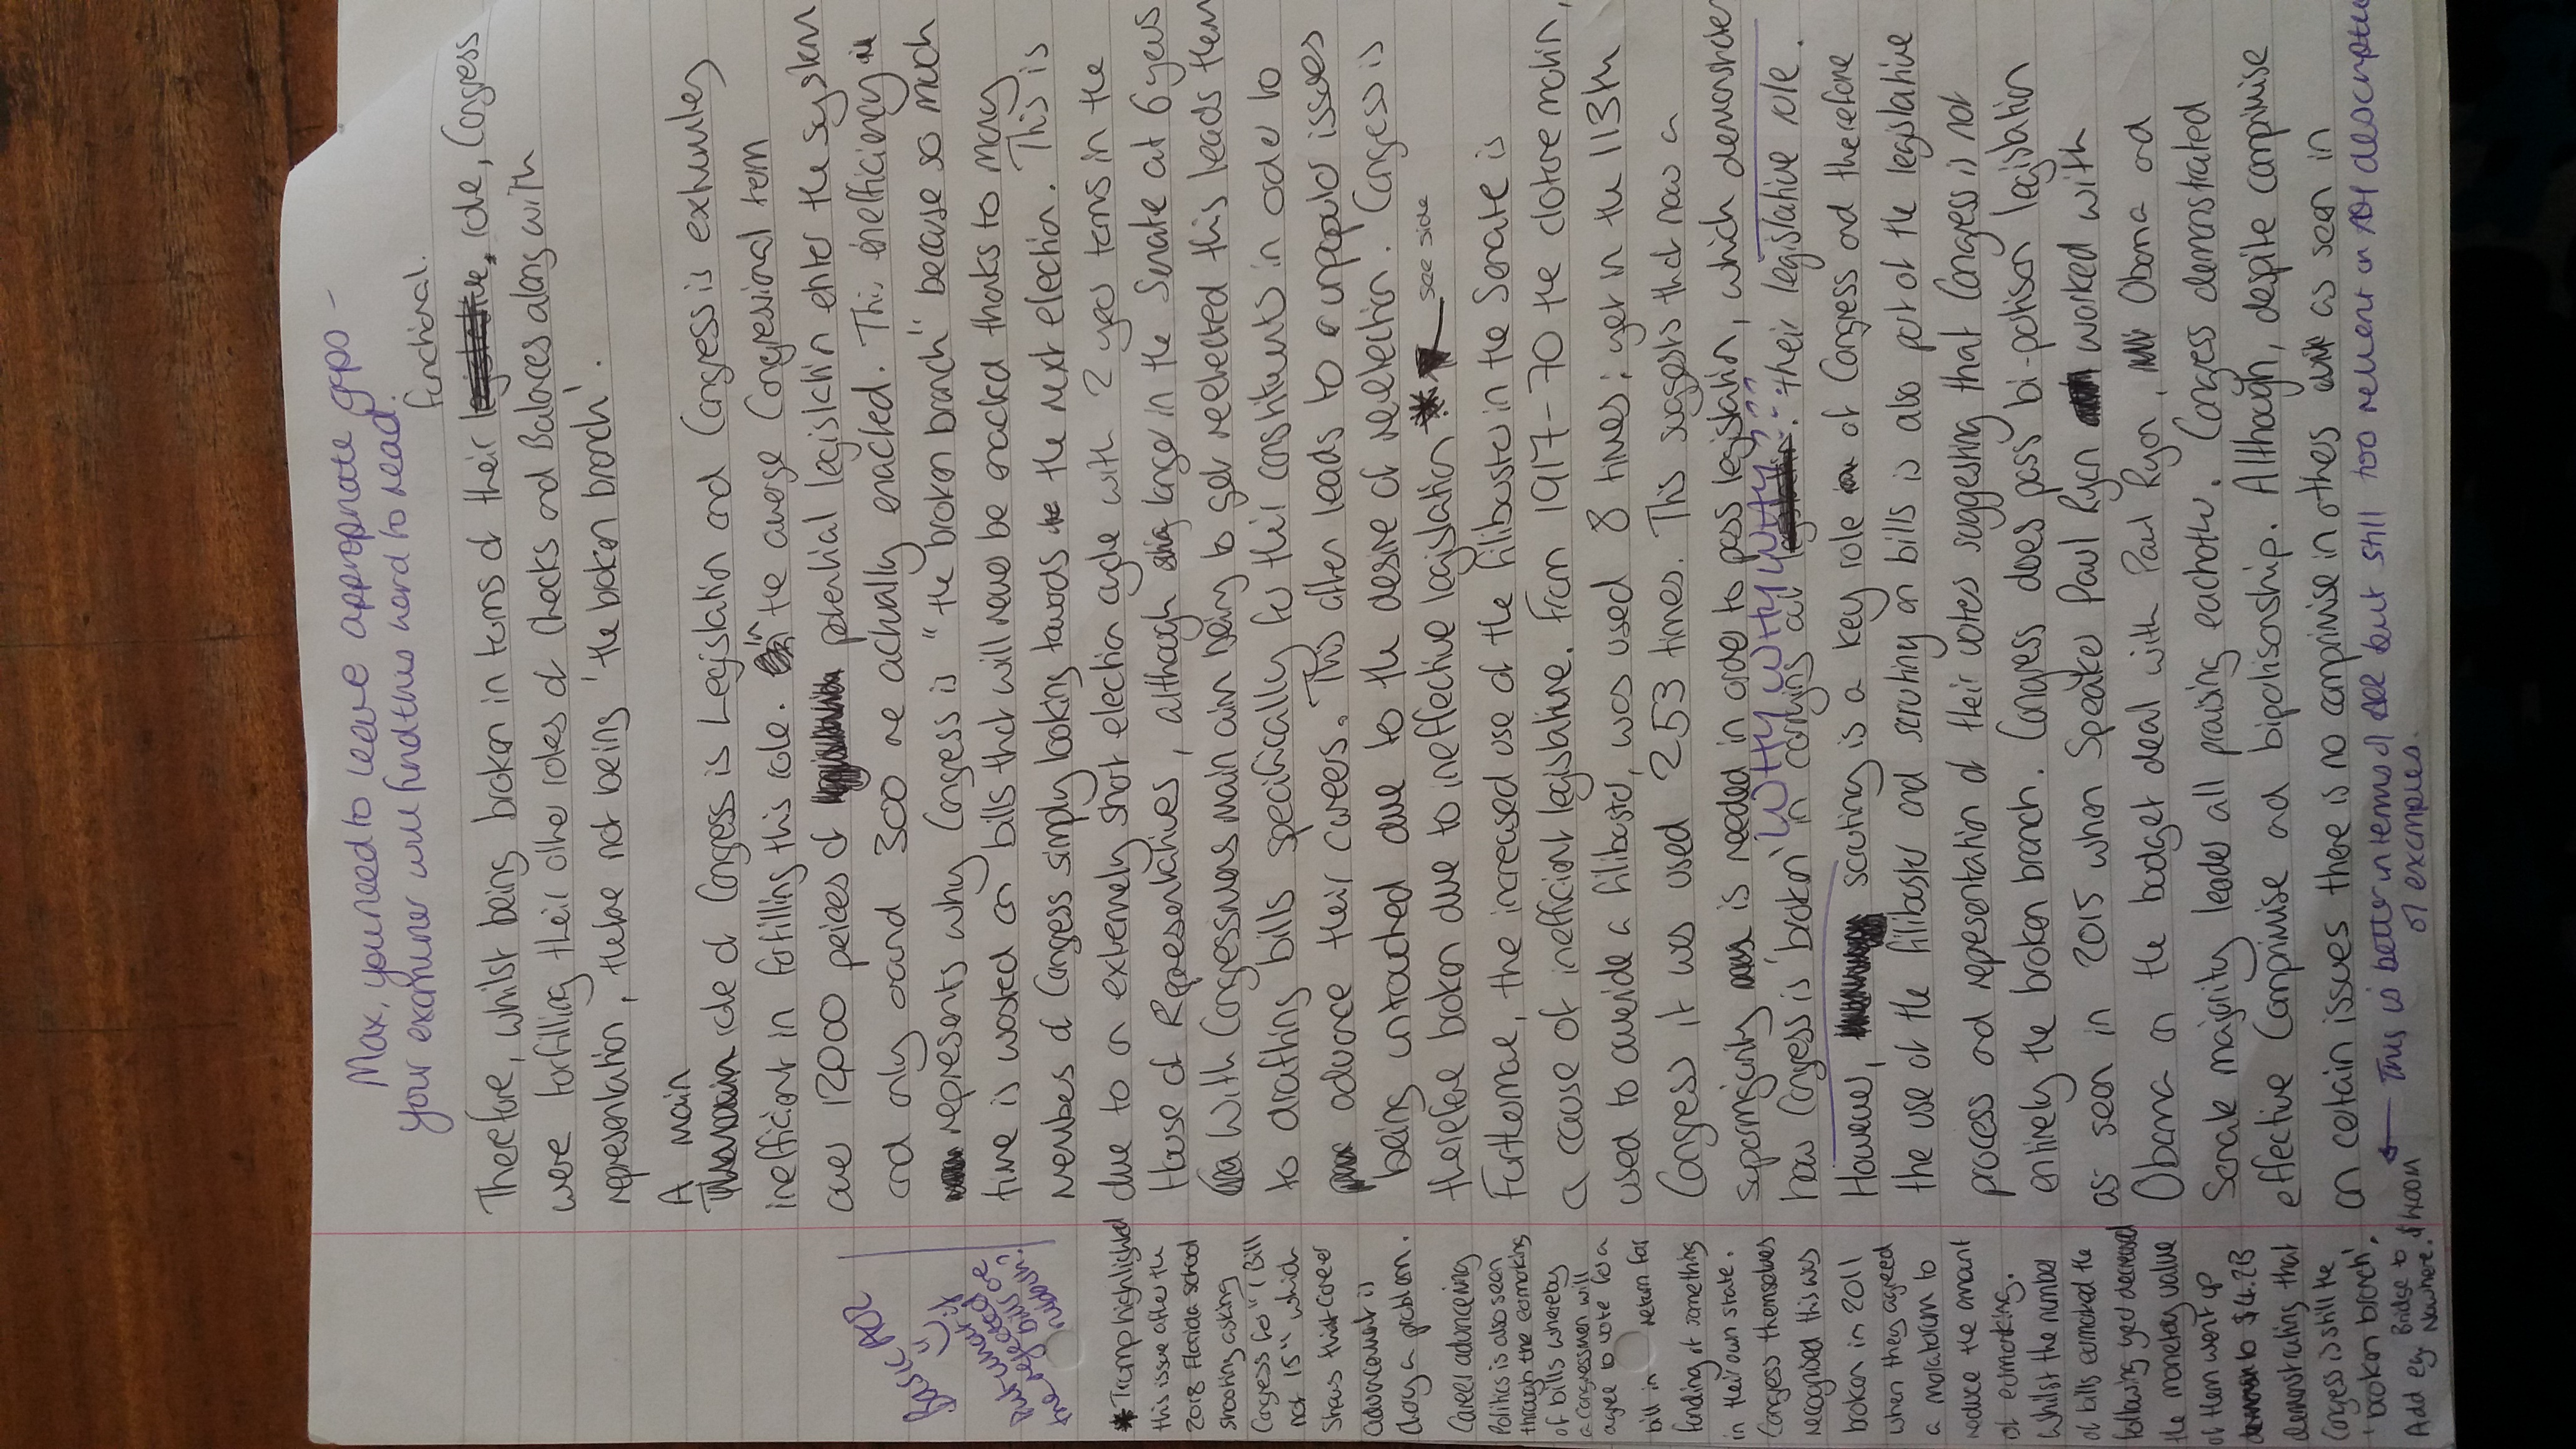 Max, you need to leave appropriate gaps -
your examiner will find this hard to read.
functional.
Therefore, whilst being broken in terms of their role, Congress
were forfilling their other roles of Checks and Balances along with
representation, thefore not being 'the broken branch'.
A main
role of Congess is Legislation and Congress is exhumley
inefficient in forfilling this role. in the averge Congressional term
over 12,000 peices of potential legislation enter the system
and only around 300 are actually enacted. This inefficiency
represents why Congress is "the broken branch" because so much
time is wasted on bills that will never be enacted thanks to many
members of Congess simply looking towards the next election. This is
due to an extremely short election cycle with 2 year terms in the
House of Representatives, although longer in the Senate at 6 years
With Congressmens main aim being to get reelected this leads them
to drafting bills specifically for their constituents in order to
advance their careers. This often leads to unpopular issues
being untouched due to the desire of reelection. Congess is
therefore broken due to ineffective legislation * see side
Furthermore, the increased use of the filibuster in the Senate is
a cause of inefficient legislative. From 1917-70 the cloture motion,
used to overide a filibuster, was used 8 times; yet in the 113th
Congress it was used 253 times. This suggests that now a
supermajority is needed in order to pass legislation, which demonstrates
how Congress is 'broken' in carrying out their legislative role.
WHY WHY WHY???
However, scrutiny is a key role of Congress and therefore
the use of the filibuster and scrutiny on bills is also part of the legislative
process and representation of their votes suggesting that Congress is not
entirely the broken branch. Congress does pass bi-partisan legislation
as seen in 2015 when Speaker Paul Ryan worked with
Obama on the budget deal with Paul Ryan, Obama and
Senate majority leader all praising eachother. Congress demonstrated
effective Compromise and bipartisonship. Although, despite compimise
on certain issues there is no comprimise in others as seen in
← This is better in terms of but still too reliant on description
of examples.
* Trump highlighted
this issue after the
2018 Florida school
shooting asking
Congress for "1 Bill
not 15" which
shows that career
advancement is
always a problem.
Career advanceing
Politics is also seen
through the earmarking
of bills whereby
a Congressmen will
agree to vote for a
bill in return for
funding of something
in their own state.
Congress themselves
recognised this was
broken in 2011
when they agreed
a moratorium to
reduce the amount
of earmarking.
Whilst the number
of bills earmarked the
following year decreased
the monetary value
of them went up
to $4.2B
demonstrating that
Congress is still the
'broken branch'.
Add eg. Bridge to
Nowhere.